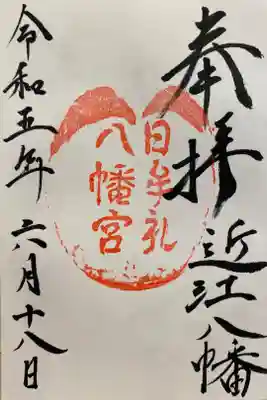 奉拝
近江八幡
日牟礼
八幡宮
令和五年六月十八日